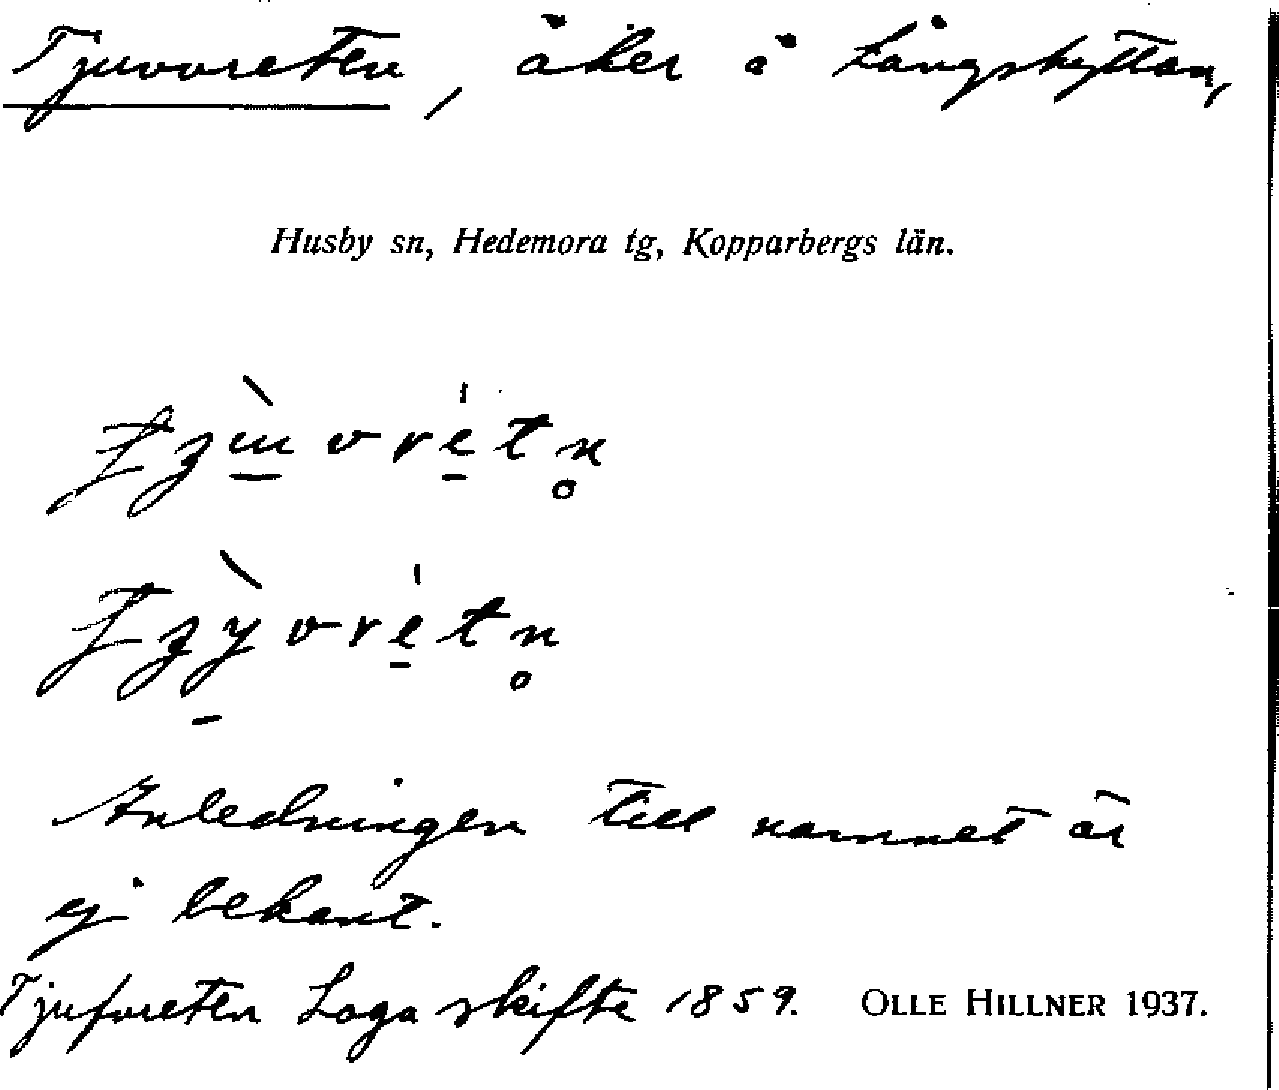 Tjuvvreten, åker å Långshyttan,
Husby sn, Hedemora tg, Kopparbergs län.
Anledningen till namnet är
ej bekant.
Tjufvreten Laga skifte 1859. OLLE HILLNER 1937.